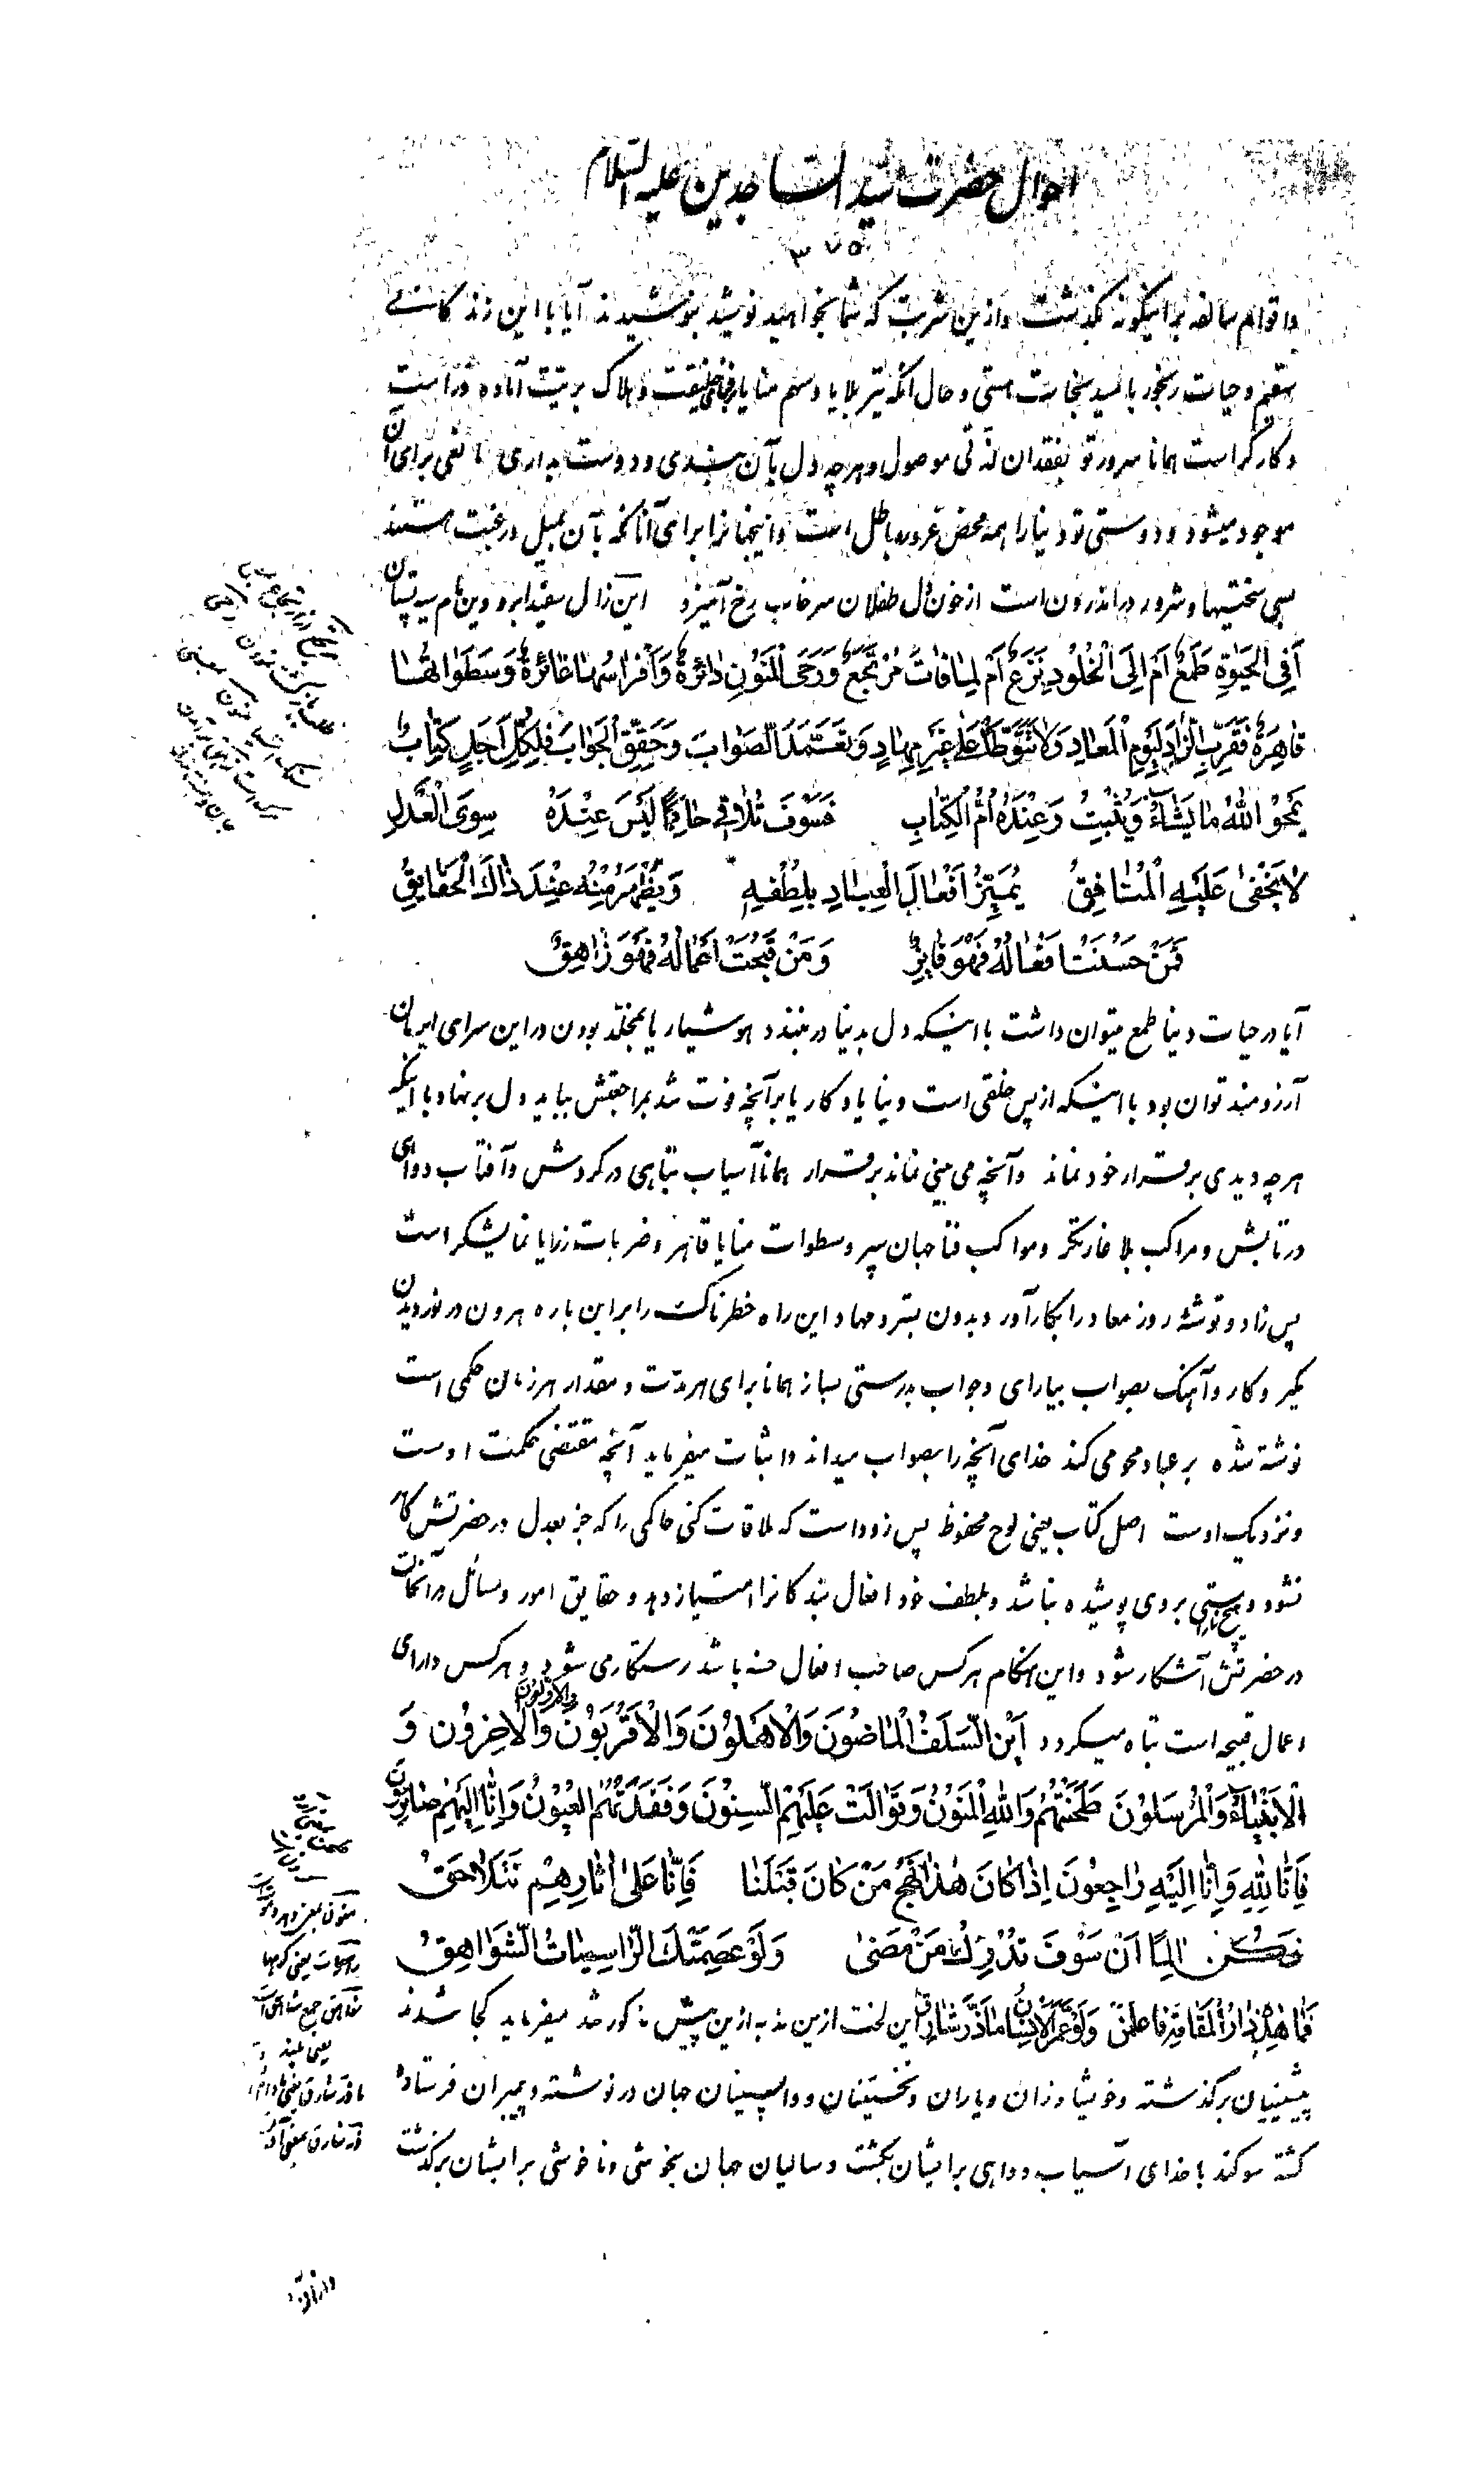 احوال حضرت سید الساجدین علیه السلام
۳۷۵
و اقوام سالفه براینگونه بگذشت و ازین شربت که شما بخواهید نوشید بنوشیدند آیا با این زندگانی
سقیم و حیات رنجور بامید نجات هستی و حال آنکه تیر بلایا و سهم منایا خلیقت و هلاک بریت آماده در است
و کارگر است همانا سرور تو بفقدان لذتی موصول و هرچه دل بآن بندی و دوست بداری مانعی برای آن
موجود میشود و دوستی تو دنیا را همه محض غرور باطل است و اینجهانرا برای آنانکه بآن بمیل و رغبت هستند
بسی سختیها و شرور در اندرون است از خون دل طفلان سرخاب رخ آمیزد این زال سفید ابرو وین مام سیه پستان
أَفِی الْحَیٰوةِ طَمَعٌ أَمْ اِلَی الْخُلُودِ نَزَعٌ أَمْ لِمٰافٰاتَ مُرْتَجَعٌ وَرَحَی الْمَنُونِ دٰائِرَةٌ وَأَفْرٰاسُهٰا غٰائِرَةٌ وَسَطَوٰاتُهٰا
قٰاهِرَةٌ فَقَرِّبِ الزّٰادَ لِیَوْمِ الْمَعٰادِ وَلاٰ تَتَوَطَّأْ عَلٰی غَیْرِ مِهٰادٍ وَتَعَمَّدِ الصَّوٰابَ وَحَقِّقِ الْجَوٰابَ فَلِکُلِّ أَجَلٍ کِتٰابٌ
یَمْحُو اللّٰهُ مٰا یَشٰاءُ وَیُثْبِتُ وَعِنْدَهُ اُمُّ الْکِتٰابِ فَسَوْفَ تُلاٰقِی حٰاکِمًا لَیْسَ عِنْدَهُ سِوَی الْعَدْلِ
لاٰ یَخْفٰی عَلَیْهِ الْمُنٰافِقُ یُمَیِّزُ أَفْعٰالَ الْعِبٰادِ بِلُطْفِهِ وَیَظْهَرُ مِنْهُ عِنْدَ ذٰاکَ الْحَقٰایِقُ
فَمَنْ حَسُنَتْ أَفْعٰالُهُ فَهُوَ فٰایِزٌ وَمَنْ قَبُحَتْ أَعْمٰالُهُ فَهُوَ زٰاهِقٌ
آیا در حیات دنیا طمع میتوان داشت با اینکه دل بدنیا در نبندد هوشیار یا بمخلد بودن در این سرای ایرمان
آرزومند توان بود با اینکه از پس خلقی است دنیا یادگار یا برآنچه فوت شد بمراجعتش بباید دل برنهاد با اینکه
هرچه دیدی برقرار خود نماند وآنچه می بینی نماند برقرار همانا آسیاب تباهی در گردش وآفتاب دواهی
در تابش و مراکب بلا غارتگر و مواکب فنا جهان سپر و سطوات منایا قاهر و ضربات رزایا نمایشگر است
پس زاد و توشهٔ روز معاد را بکار آور و بدون بستر و مهاد این راه خطرناک را بر این باره هرون در نوردیدن
مگیر و کار و آهنگ بصواب بیارای و جواب بدرستی بساز همانا برای هر مدّت و مقدار هر زمان حکمی است
نوشته شده بر عباد محو می کند خدای آنچه را بصواب میداند و اثبات میفرماید آنچه مقتضی حکمت اوست
و نزدیک اوست اصل کتاب یعنی لوح محفوظ پس زود است که ملاقات کنی حاکمی را که جز بعدل در حضرتش کار
نشود و هیچ بروی پوشیده نباشد و بلطف خود افعال بندگانرا امتیاز دهد و حقایق امور و مسائل در آنحالت
در حضرتش آشکار شود و این هنگام هر کس صاحب افعال حسنه باشد رستگار می شود و هر کس دارای
اعمال قبیحه است تباه میگردد أَیْنَ السَّلَفُ الْمٰاضُونَ وَالْاَهْلُونَ وَالْاَقْرَبُونَ وَالْاَوَّلُونَ وَالْآخِرُونَ وَ
الْاَنْبِیٰاءُ وَالْمُرْسَلُونَ طَحَنَتْهُمْ وَاللّٰهِ الْمَنُونُ وَتَوٰالَتْ عَلَیْهِمُ السِّنُونَ وَفَقَدَتْهُمُ الْعُیُونُ وَاِنّٰا اِلَیْهِمْ صٰائِرُونَ
فَاِنّٰا لِلّٰهِ وَاِنّٰا اِلَیْهِ رٰاجِعُونَ اِذٰا کٰانَ هٰذٰا نَهْجُ مَنْ کٰانَ قَبْلَنٰا فَاِنّٰا عَلٰی اٰثٰارِهِمْ نَتَلاٰحَقُ
فَکُنْ عٰالِمًا أَنْ سَوْفَ تُدْرِکُ مَنْ مَضٰی وَلَوْ عَصَمَتْکَ الرّٰاسِیٰاتُ الشَّوٰاهِقُ
فَمٰا هٰذِهِ دٰارُ الْمُقٰامَةِ فَاعْلَمَنْ وَلَوْ عُمِّرَ الْاِنْسٰانُ مٰا ذَرَّ شٰارِقٌ این لخت ازین ندبه ازین پیش مذکور شد میفرماید کجا شدند
پیشینیان برگذشته و خویشاوندان و یاران و نخستینان و واپسینان جهان در نوشته و پیمبران فرستاده
گشته سوگند با خدای آسیاب دواهی برایشان بگشت و سالیان جهان بخوشی و ناخوشی برایشان برگذشت
راسیات یعنی کوهها
شواهق جمع شاهق است
یعنی بلند